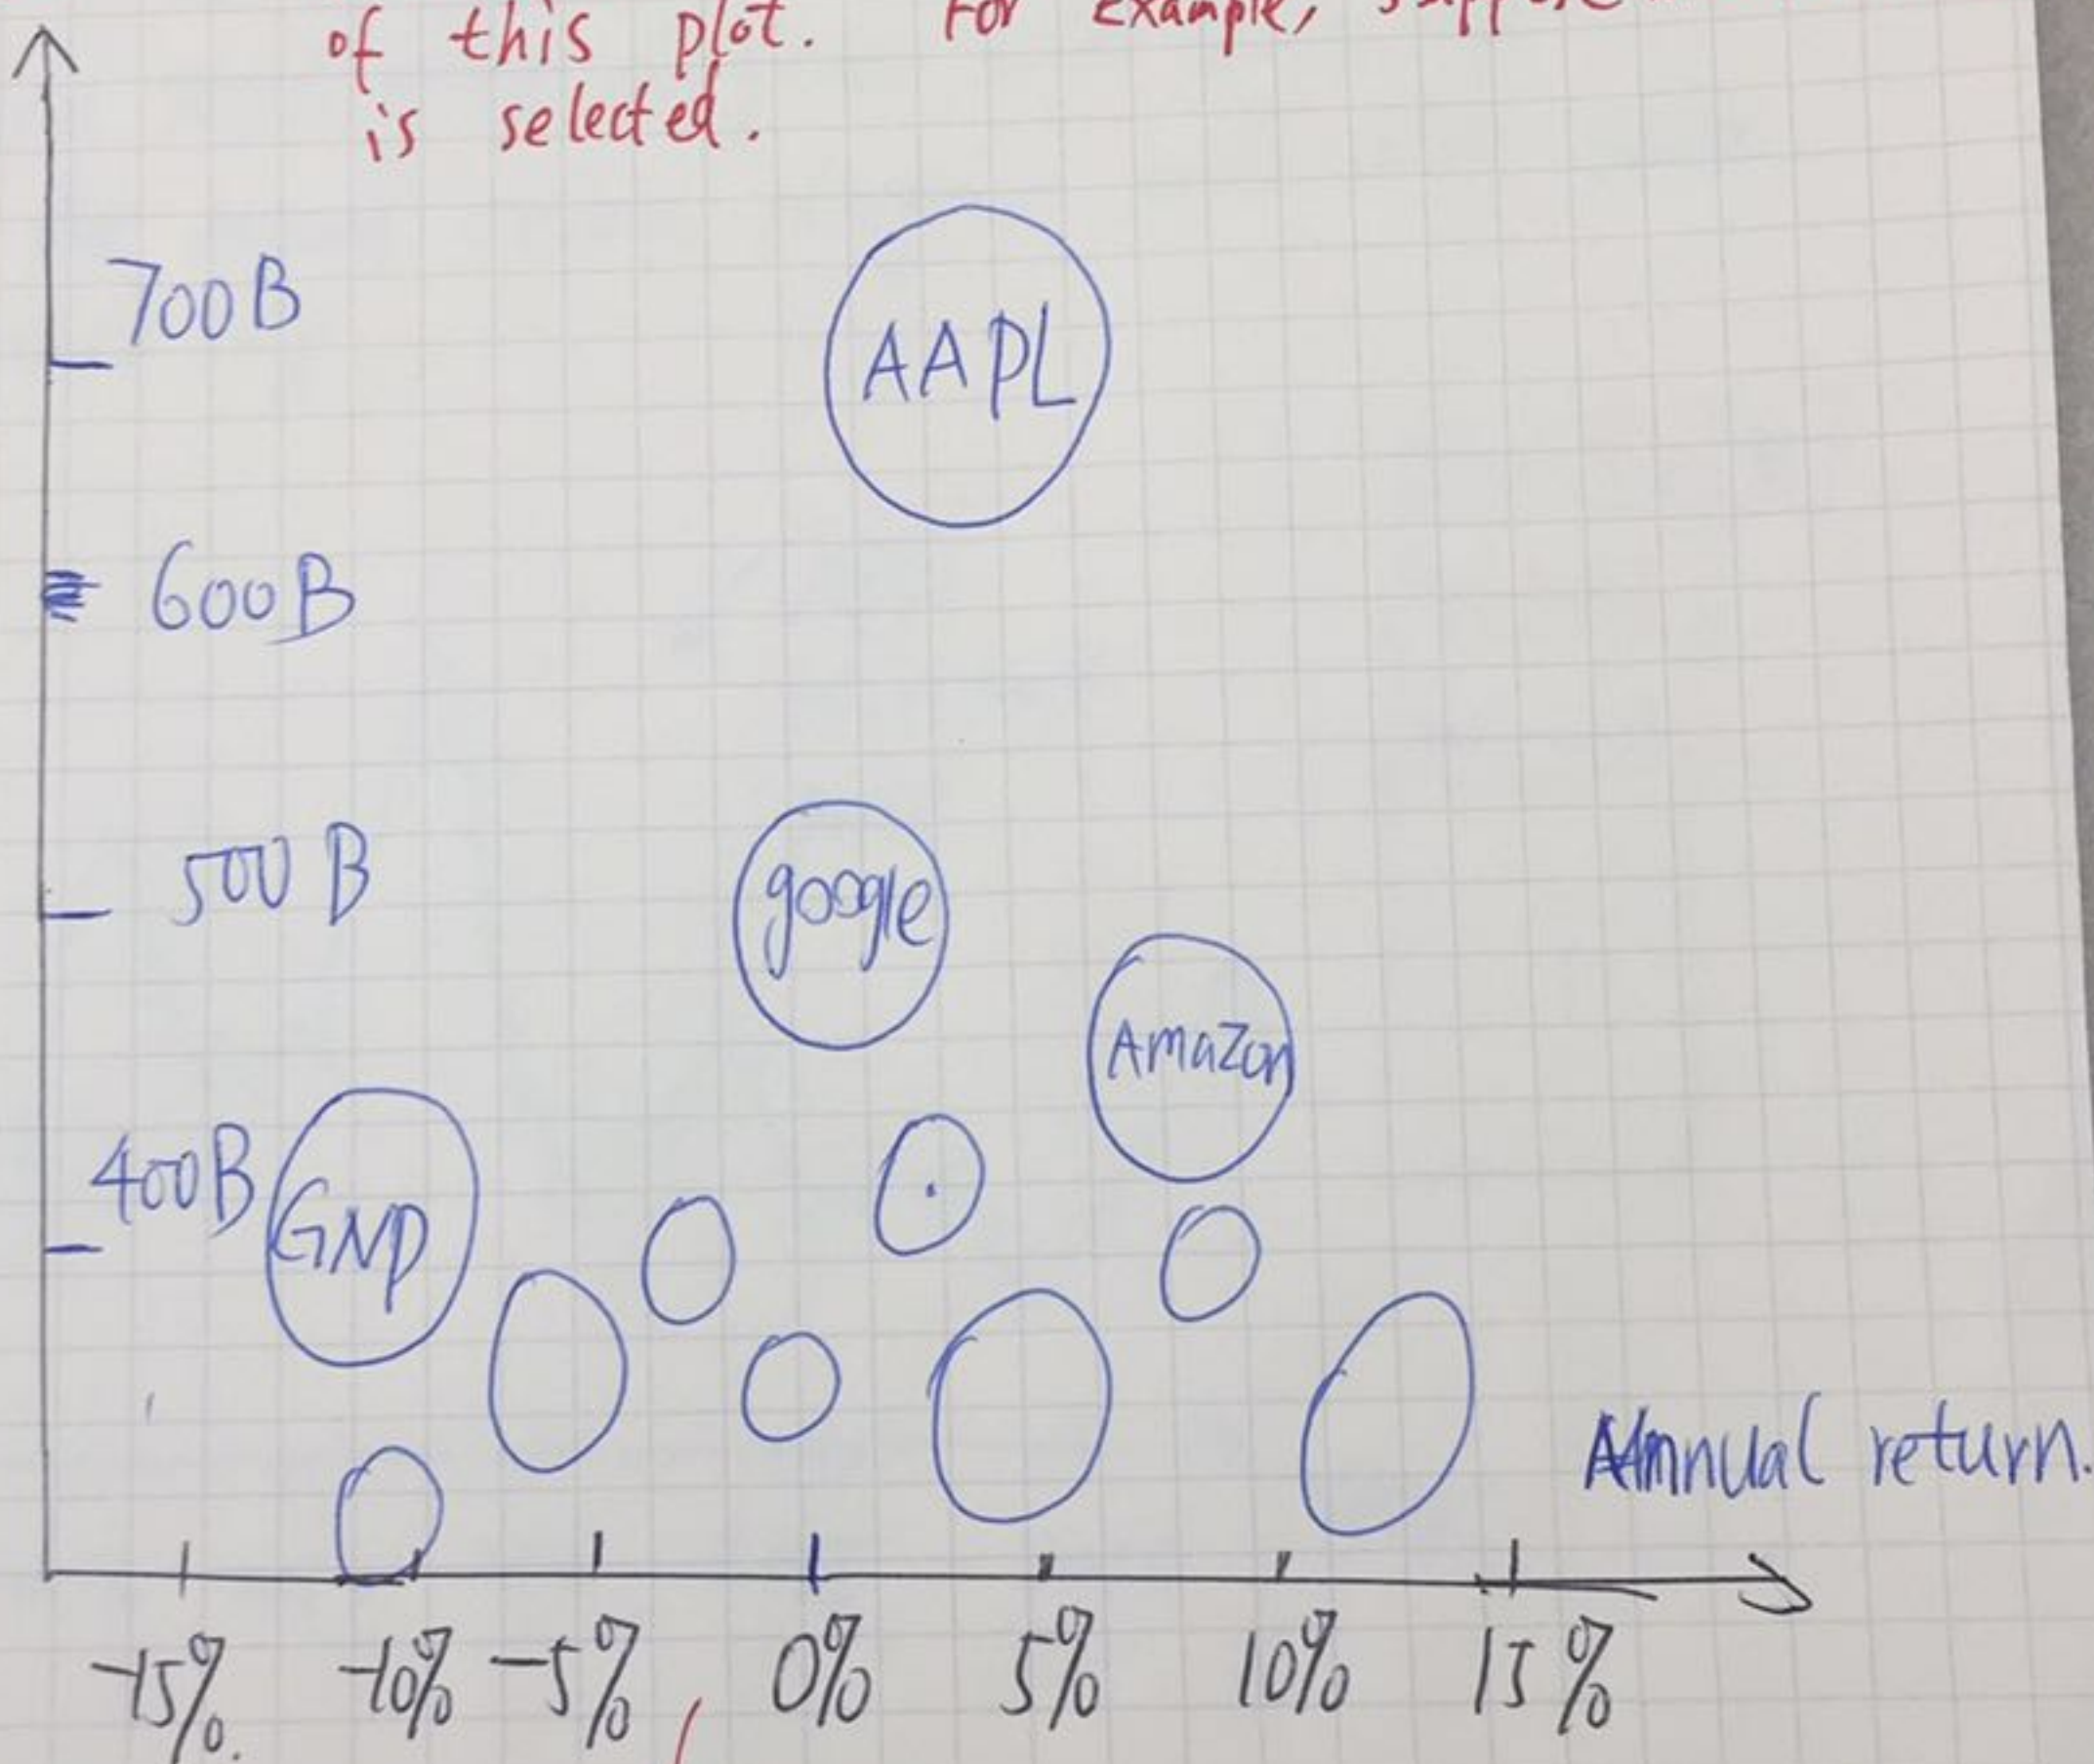 of this plot. For example, suppose
is selected.
700B
AAPL
600B
500B
google
Amazon
400B
GNP
Annual return.
-15%. -10% -5% 0% 5% 10% 15%